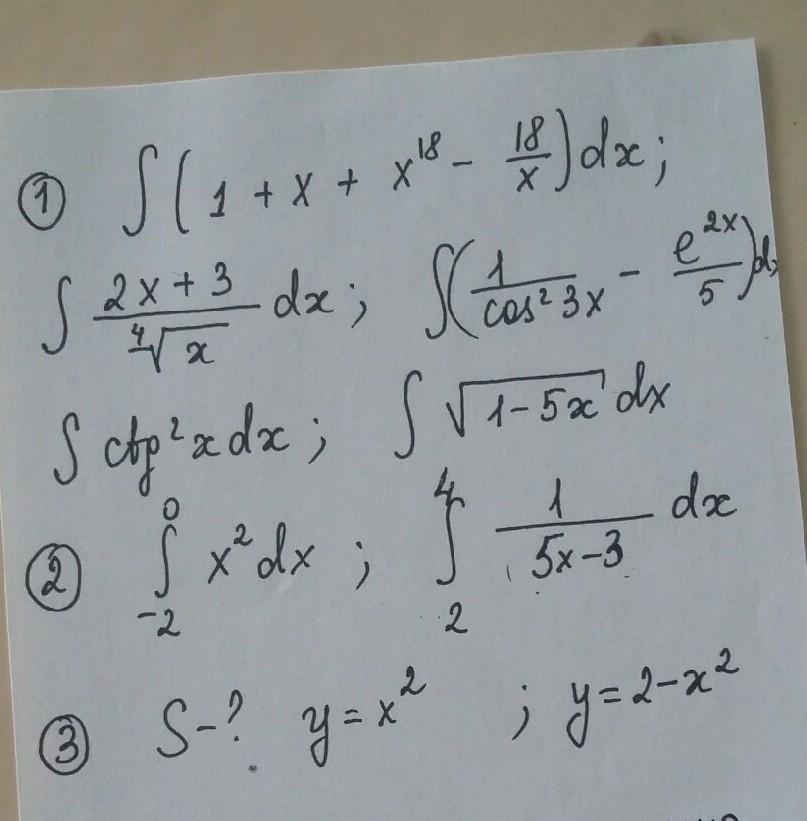 ① ∫(1 + x + x¹⁸ − 18/x)dx;
∫ (2x+3)/⁴√x dx; ∫(1/cos²3x − e²ˣ/5)dx
∫ ctg²x dx; ∫ √(1−5x) dx
② ∫₋₂⁰ x²dx; ∫₂⁴ 1/(5x−3) dx
③ S−? y=x² ; y=2−x²